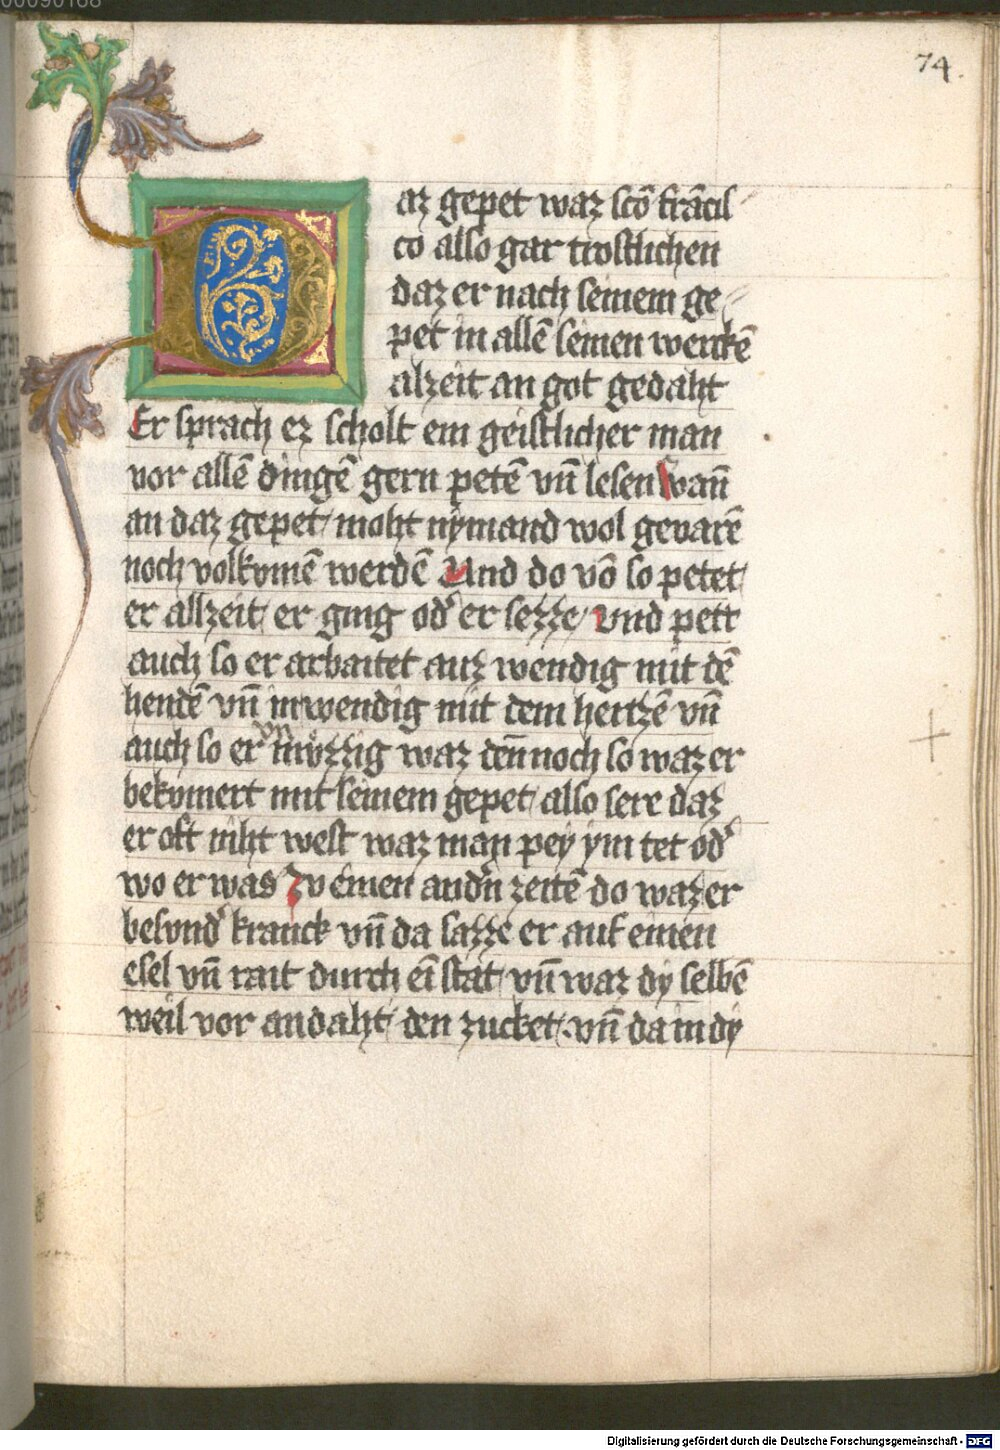 00090168
74.
Daz gepet waz scō francis
co also gar trostlichen
daz er nach seinem ge
pet in allē seinen werkē
alzeit an got gedaht
Er sprach ez scholt ein geistlicher man
vor allē dingē gern petē vn̄ lesen wan̄
an daz gepet / moht nymand wol gevarē
noch volkvmē werdē Und do vō so petet /
er allzeit / er ging od' er sezze / vnd pett
auch so er arbaitet auz wendig mit dē
hendē vn̄ inwendig mit dem hertzē vn̄
auch so er mvzzig waz dennoch so waz er
bekvmert mit seinem gepet / also sere daz
er oft niht west waz man pey ym tet od'
wo er was Zv einen and'n zeitē do waz er
besvnd' kranck vn̄ da sazze er auf einen
esel vn̄ rait durch ei stat / vn̄ waz dy selbē
weil vor andaht / den zucket / vn̄ da in dy
Digitalisierung gefördert durch die Deutsche Forschungsgemeinschaft - DFG